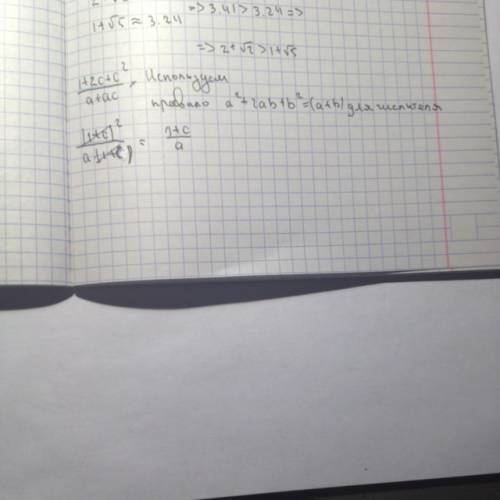 => 3.41 > 3.24 =>
1+√5 ≈ 3.24
=> 2+√2 > 1+√5
(1+2c+c²)/(a+ac), Используем
правило a²+2ab+b²=(a+b) для числителя
(1+c)²/(a(1+c)) = (1+c)/a